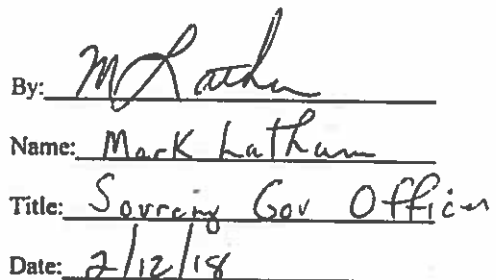 By: M Latham
Name: Mark Latham
Title: Sourcing Gov Officer
Date: 2/12/18